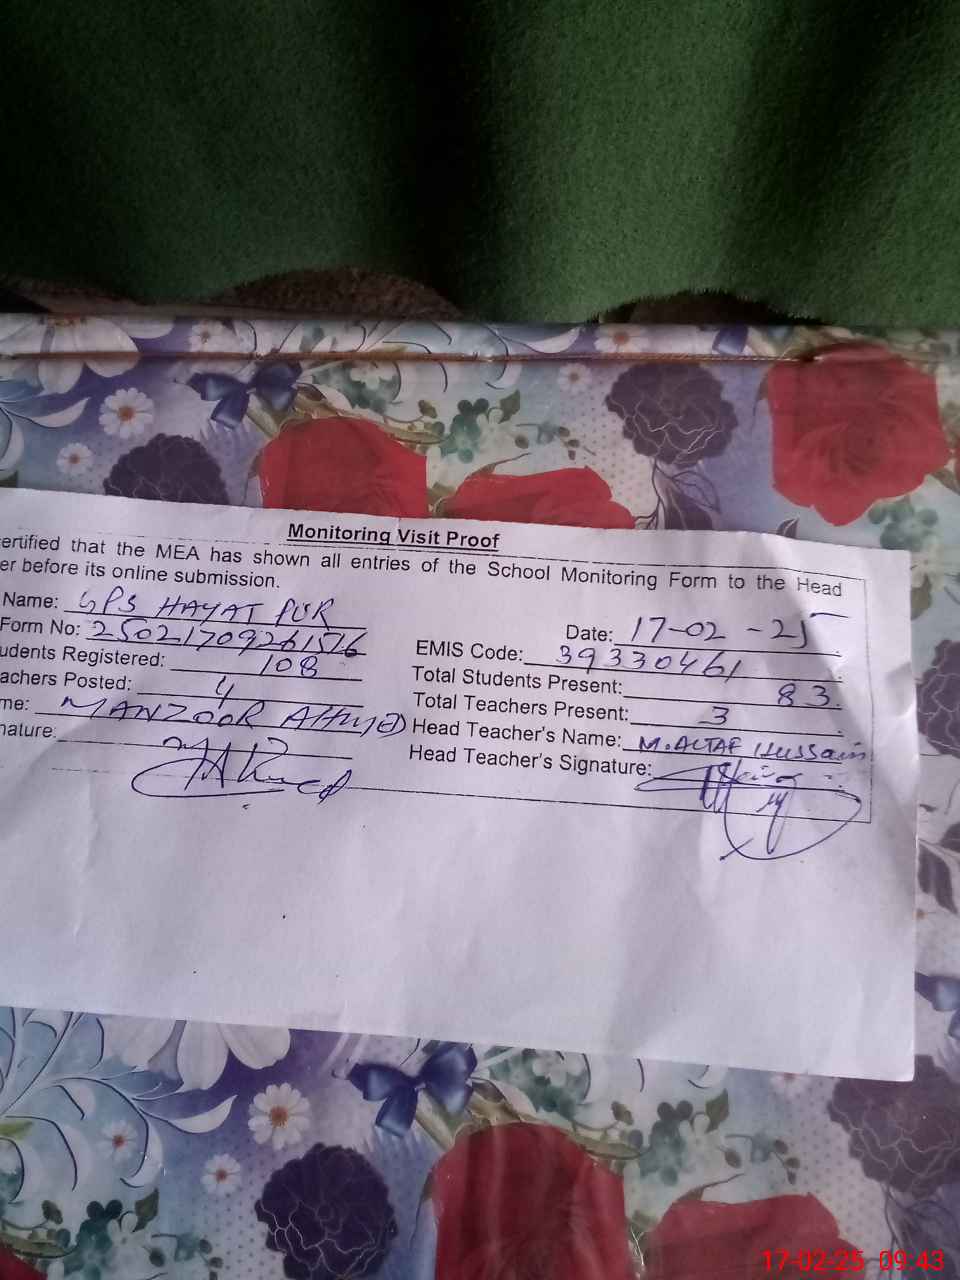 Monitoring Visit Proof
ertified that the MEA has shown all entries of the School Monitoring Form to the Head
er before its online submission.
Name: GPS HAYAT PUR Date: 17-02-25
Form No: 25021709261516 EMIS Code: 39330461
udents Registered: 108 Total Students Present: 83
achers Posted: 4 Total Teachers Present: 3
me: MANZOOR AHMED Head Teacher's Name: M. ALTAF HUSSAIN
nature: Head Teacher's Signature:
17-02-25 09:43